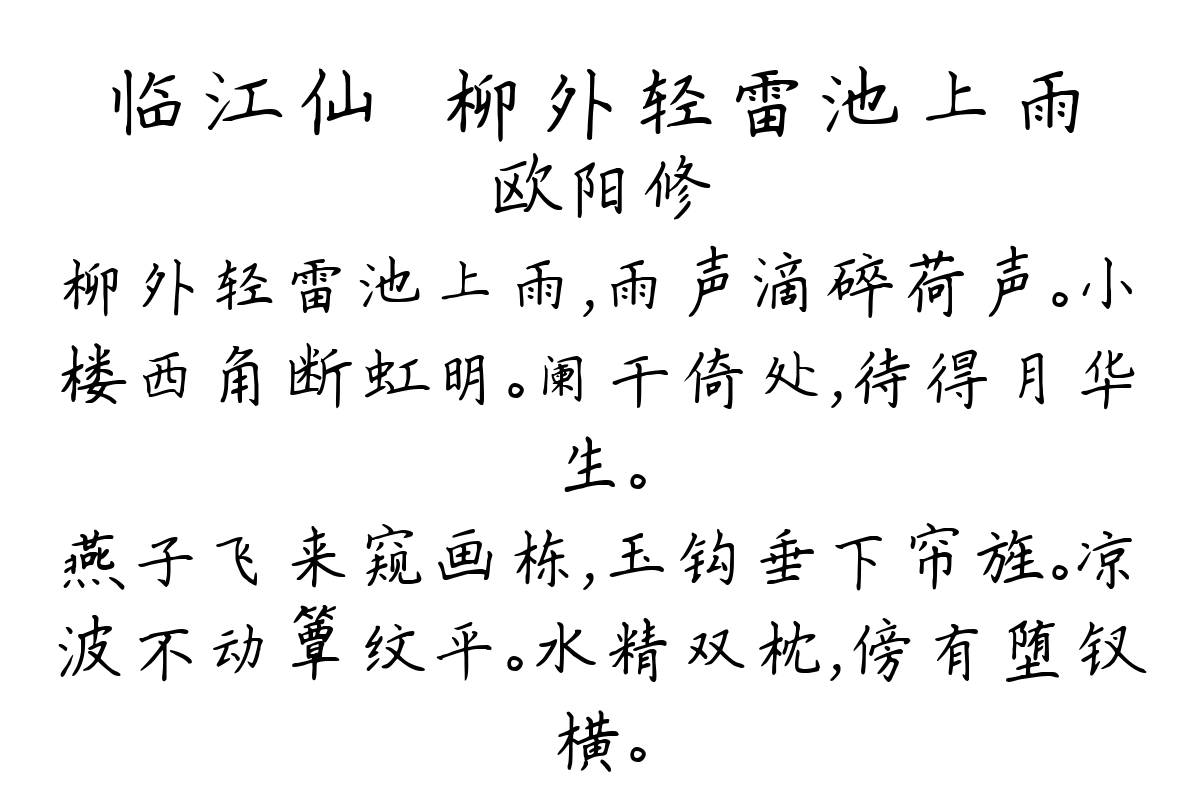 临江仙 柳外轻雷池上雨
欧阳修
柳外轻雷池上雨,雨声滴碎荷声。小
楼西角断虹明。阑干倚处,待得月华
生。
燕子飞来窥画栋,玉钩垂下帘旌。凉
波不动簟纹平。水精双枕,傍有堕钗
横。